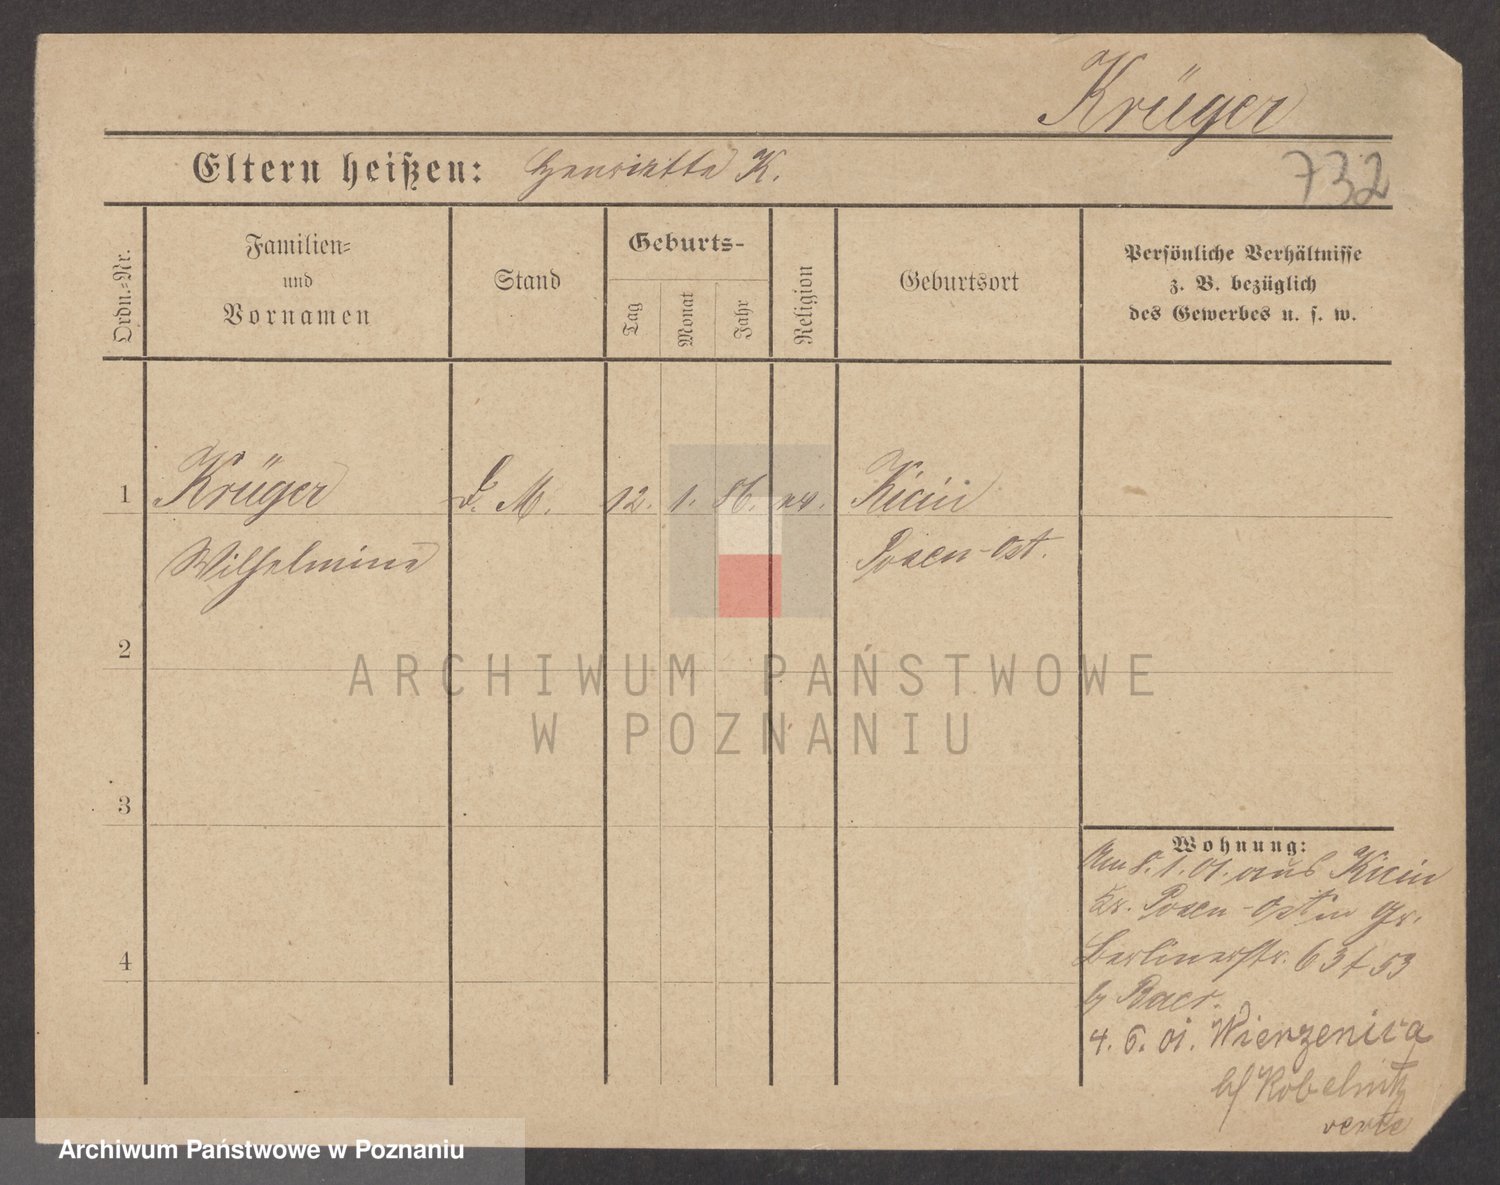 Krüger
Eltern heißen: Henriette K.
732
Ordn.-Nr.
Familien-
und
Vornamen
Stand
Geburts-
Tag
Monat
Jahr
Religion
Geburtsort
Persönliche Verhältnisse
z. B. bezüglich
des Gewerbes u. s. w.
1 Krüger D. M. 12. 1. 86. ev. Kicin
Wilhelmine Posen-Ost.
2
3
4
Wohnung:
Am 8. 1. 01. aus Kicin
Kr. Posen-Ost in Gr.
Berlinerstr. 63/53
b/ Baer.
4. 6. 01. Wierzenica
b/ Kobelnitz
verte
ARCHIWUM PAŃSTWOWE
W POZNANIU
Archiwum Państwowe w Poznaniu